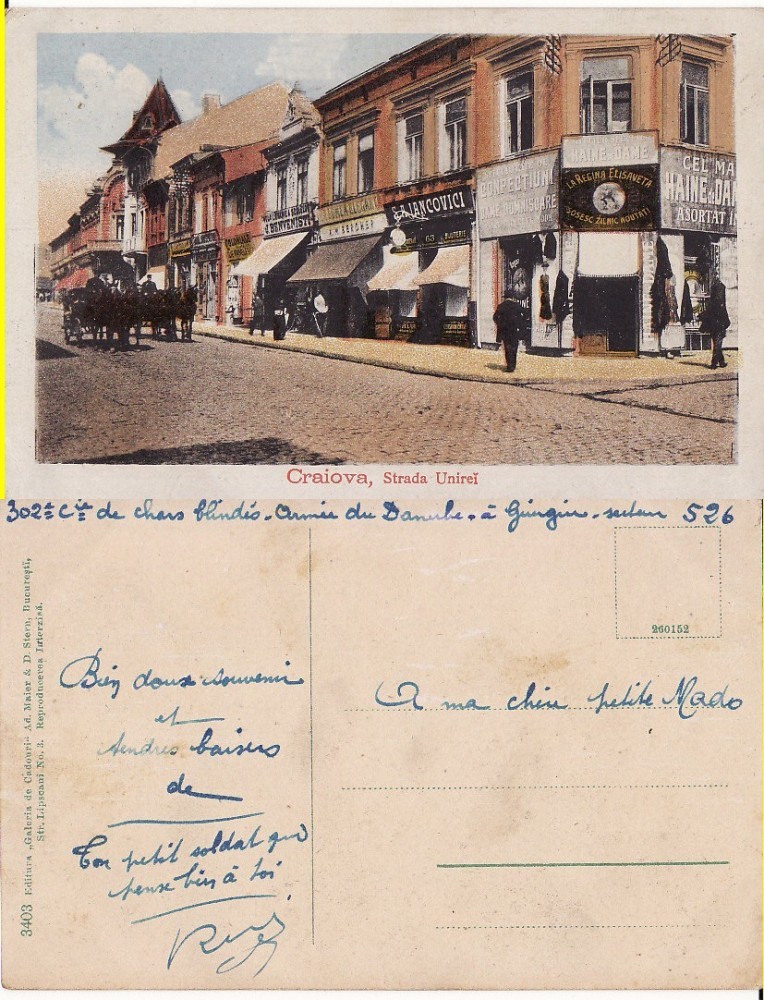 LA REGINA ELISAVETA
SOSESC ZILNIC NOUTATI
CONFECTIUNI
HAINE DAME
CEL MAI
HAINE DAME
ASORTAT
IANCOVICI
Craiova, Strada Unireĭ
302e Cie de chars blindés - Armée du Danube - à Giurgiu - secteur 526
260152
A ma chère petite Mado
Bien doux souvenir
et
tendres baisers
de
Ton petit soldat qui
pense bien à toi
3403 Editura „Galeria de Cadouri" Ad. Maier & D. Stern, Bucureștĭ,
Str. Lipscani No. 3. Reproducerea Interzisă.